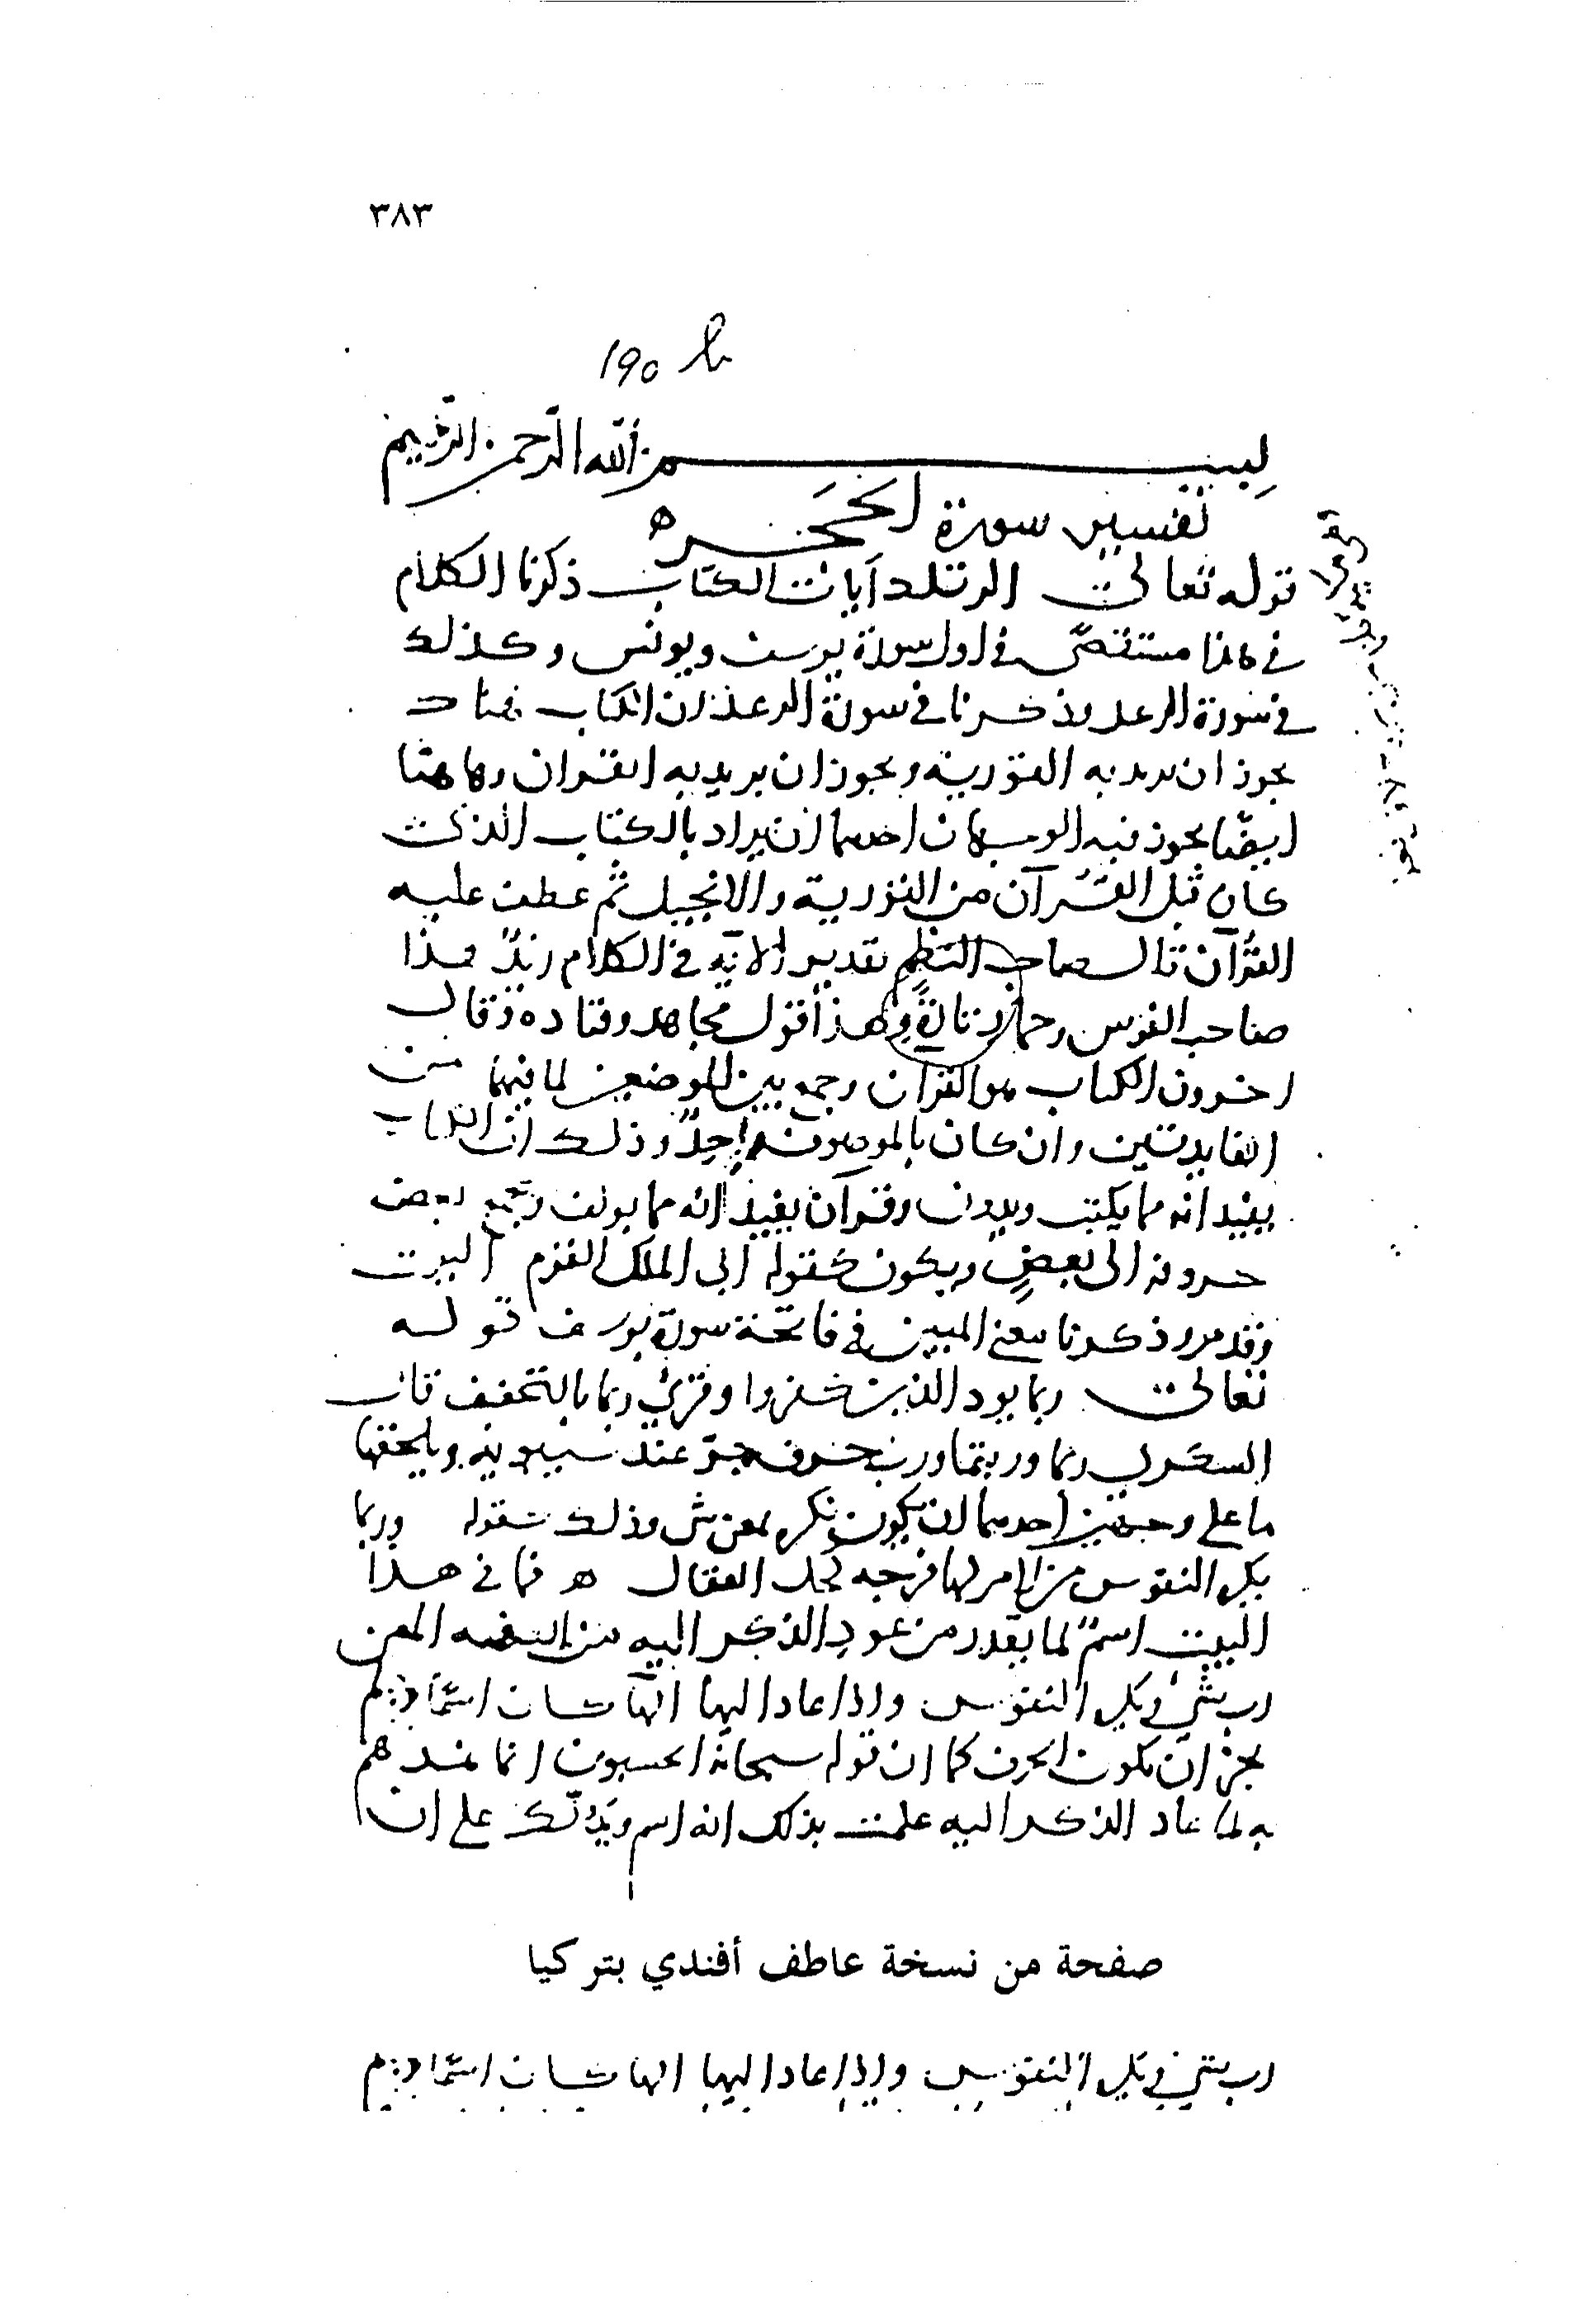 ٣٨٣
190
بسم الله الرحمن الرحيم
تفسير سورة الحجر ه
قوله تعالى الر تلك آيات الكتاب ذكرنا الكلام
في هذا مستقصى في اول سورة يوسف ويونس وكذلك
في سورة الرعد وذكرنا في سورة الرعد ان الكتاب هناك
يجوز ان يريد به التورية ويجوز ان يريد به القران وهاهنا
ايضا يجوز فيه الوجهان احدهما ان يراد بالكتاب الذي
كان قبل القرآن من التورية والانجيل ثم عطف عليه
القرآن قال صاحب النظم تقدير الآية في الكلام زيد هذا
صاحب الفرس وحمار وناقة وهذا قول مجاهد وقتاده وقال
اخرون الكتاب هو القرآن وجمع بين الموضعين لما فيهما من
الفايدتين وان كان بالموصوف واحد وذلك ان الكتاب
يفيد انه مما يكتب ويدون وقرآن يفيد انه مما يولف ويجمع بعض
حروفه الى بعض ويكون كقوله الى الملك القرم البيت
وقد مر وذكرنا معنى المبين في فاتحة سورة يوسف قوله
تعالى ربما يود الذين كفروا وقرئ ربما بالتخفيف قال
السكري ربما وربتما ورب حرف جر عند سيبويه ويلحقها
ما على وجهين احدهما ان يكون نكره بمعنى شي وذلك كقوله وربما
تكره النفوس من الامر لها فرجه كحل العقال ه فما في هذا
البيت اسم لما يقدر من عود الذكر اليه من الصفه المعنى
رب شيء تكره النفوس واذا عاد اليها الها كان اسما ولم
يجز ان يكون الحرف كما ان قوله سبحانه ايحسبون انما نمدهم
به لما عاد الذكر اليه علمت بذلك انه اسم ويدلك على ان
صفحة من نسخة عاطف أفندي بتركيا
رب شيء تكره النفوس واذا عاد اليها الها كان اسما ولم